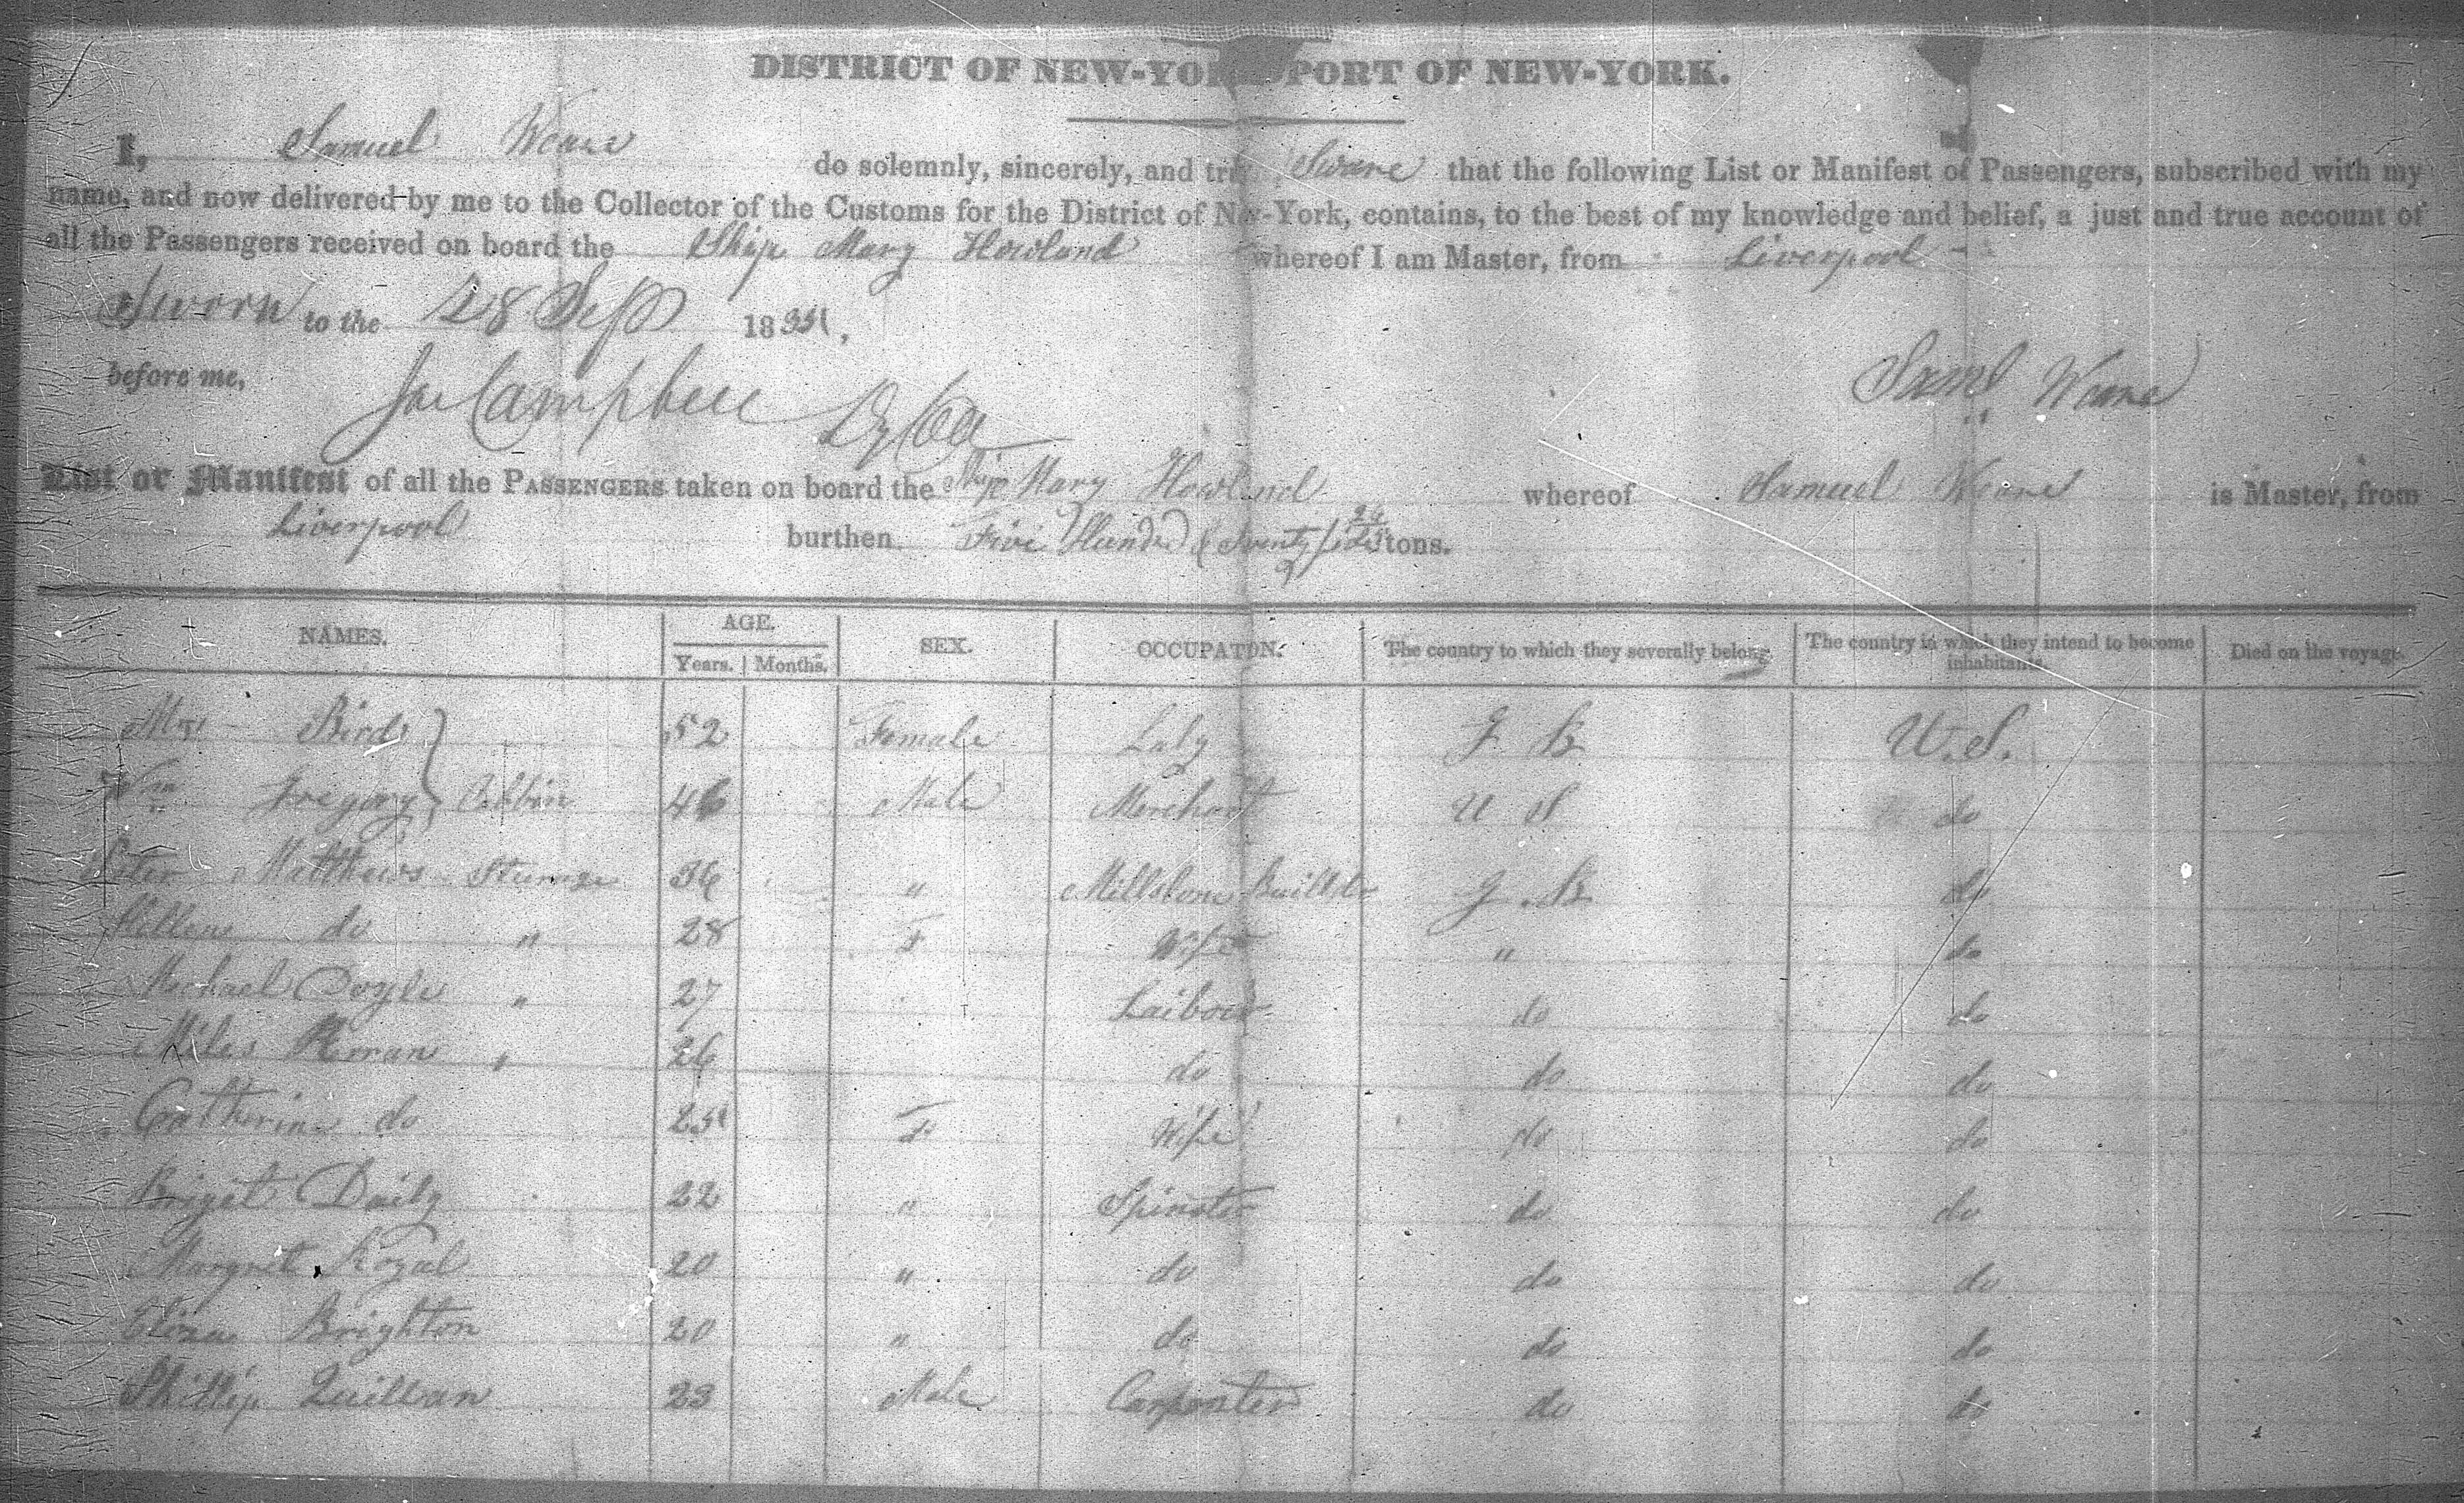 DISTRICT OF NEW-YORK PORT OF NEW-YORK.
I, Samuel Weare do solemnly, sincerely, and tru Sware that the following List or Manifest of Passengers, subscribed with my
name, and now delivered by me to the Collector of the Customs for the District of New-York, contains, to the best of my knowledge and belief, a just and true account of
all the Passengers received on board the Ship Mary Howland whereof I am Master, from Liverpool
Sworn to the 28 Sep 1831,
before me, Campbell Dy Col
Saml Weare
List or Manifest of all the PASSENGERS taken on board the Ship Mary Howland whereof Samuel Weare is Master, from
Liverpool burthen Five Hundd & Twenty tons.
NAMES. AGE. Years. Months. SEX. OCCUPATON. The country to which they severally belong. The country in which they intend to become inhabitants. Died on the voyage.
Mrs Bird 52 Female Lady G B U.S.
Wm Gregory Cabbin 46 Male Merchant U S do
Peter Matthews Steerage 36 " Millstone Builder G B do
do " 28 F Wife " do
Michael Doyle " 27 Laibour do do
Miles " 26 do do do
Catherine do 25 F Wife do do
Briget Daily 22 " Spinster do do
Margret Royal 20 " do do do
Eliza Brighton 20 " do do do
Phillip Quillvan 23 Male Carpenter do do